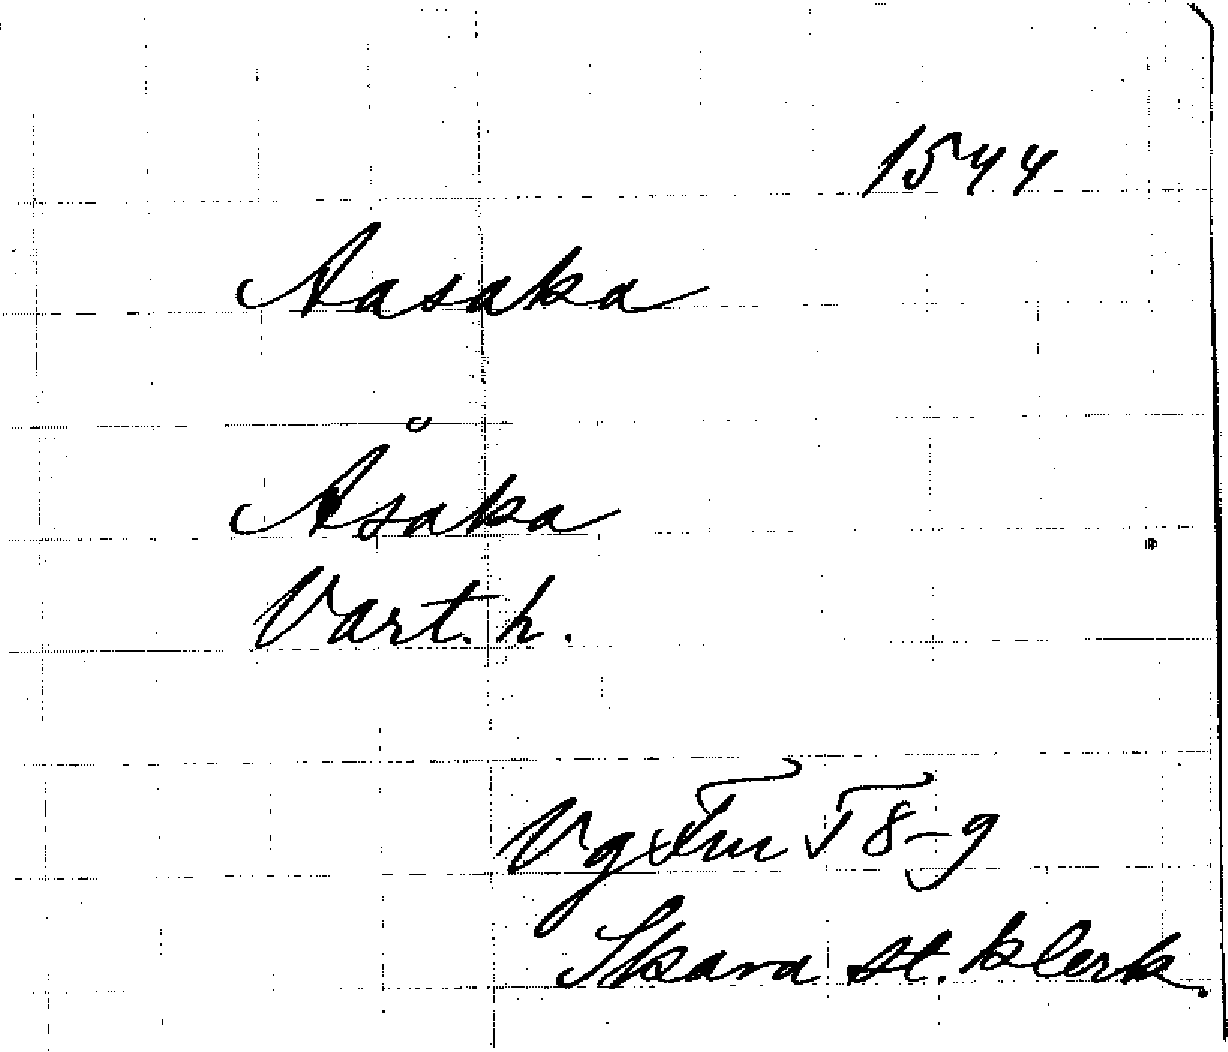 1544
Aasaka
Åsaka
Vart. h.
Vg Fm T 8-9
Skara st. klerk.